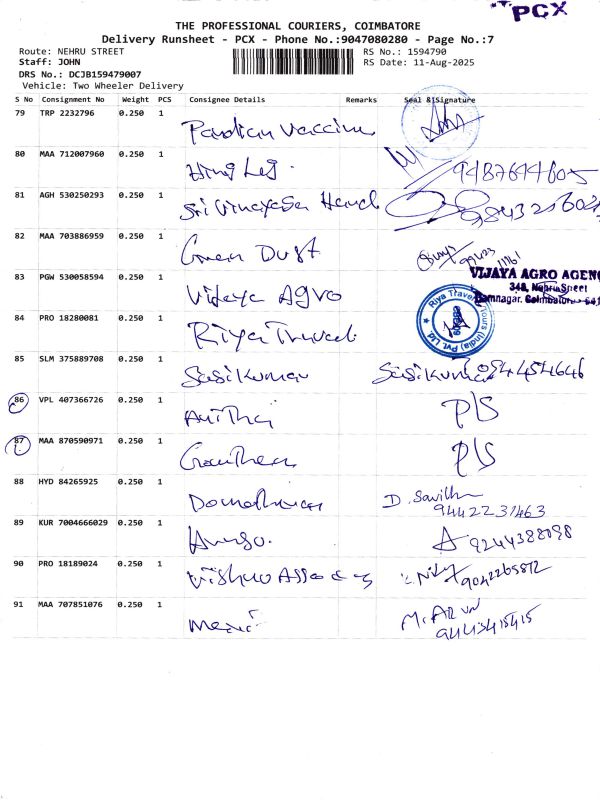 PCX
THE PROFESSIONAL COURIERS, COIMBATORE
Delivery Runsheet - PCX - Phone No.:9047080280 - Page No.:7
Route: NEHRU STREET RS No.: 1594790
Staff: JOHN RS Date: 11-Aug-2025
DRS No.: DCJB159479007
Vehicle: Two Wheeler Delivery
S No Consignment No Weight PCS Consignee Details Remarks Seal & Signature
79 TRP 2232796 0.250 1 Pandian Vaccine
80 MAA 712007960 0.250 1
81 AGH 530250293 0.250 1 Sri Vinayaga
82 MAA 703886959 0.250 1 Green Dust
83 PGW 530058594 0.250 1 Vijaya Agro VIJAYA AGRO AGEN
348, Nehru Street
Ramnagar, Coimbatore - 641
84 PRO 18280081 0.250 1 Riya Travel Riya Travel Tours (India) Pvt. Ltd.
85 SLM 375889708 0.250 1 Sasikumar Sasikumar
86 VPL 407366726 0.250 1 Anitha P/S
87 MAA 870590971 0.250 1 P/S
88 HYD 84265925 0.250 1 D.
9442231463
89 KUR 7004666029 0.250 1 9244388098
90 PRO 18189024 0.250 1 9042265872
91 MAA 707851076 0.250 1 M. ARUN
9443415415